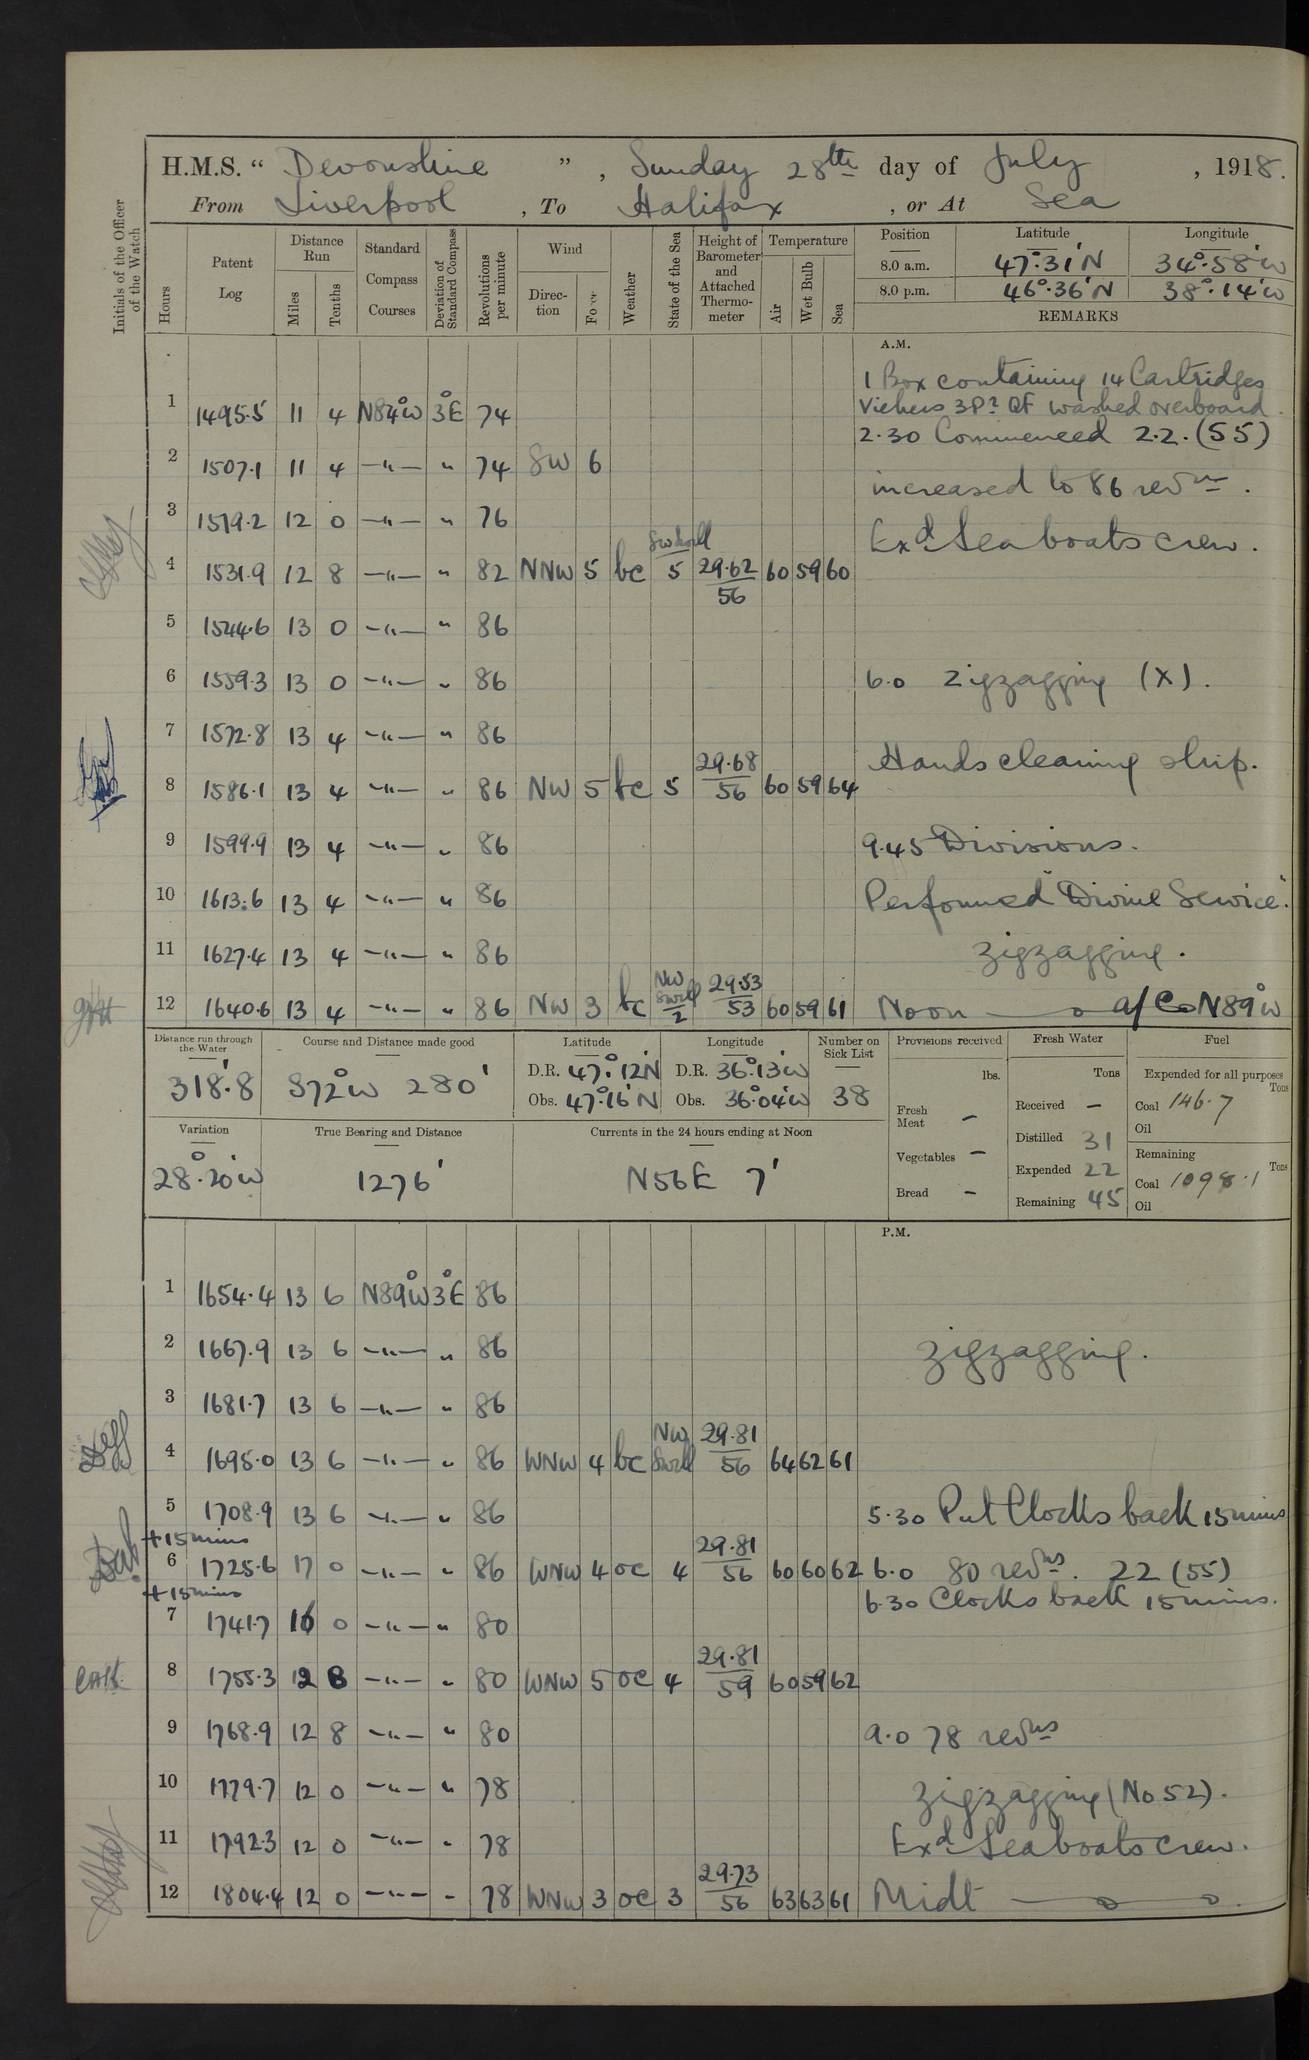 H.M.S. “ Devonshire ” , Sunday 28th day of July , 1918.
From Liverpool , To Halifax , or At Sea
Initials of the Officer of the Watch
Hours
Patent Log
Distance Run
Miles
Tenths
Standard Compass Courses
Deviation of Standard Compass
Revolutions per minute
Wind
Direction
Force
Weather
State of the Sea
Height of Barometer and Attached Thermometer
Temperature
Air
Wet Bulb
Sea
Position Latitude Longitude
8.0 a.m. 47°.31'N 34°.58'W
8.0 p.m. 46°.36'N 38°.14'W
REMARKS
A.M.
1 Box containing 14 Cartridges
1 1495.5 11 4 N84°W 3°E 74 Vickers 3Pr QF washed overboard.
2.30 Commenced 2.2.(55)
2 1507.1 11 4 —"— " 74 SW 6
increased to 86 revns.
3 1519.2 12 0 —"— " 76
Exd Seaboats crew.
4 1531.9 12 8 —"— " 82 NNW 5 bc SW swell 5 29.62/56 60 59 60
5 1544.6 13 0 —"— " 86
6 1559.3 13 0 —"— " 86 6.0 Zigzagging (X).
7 1572.8 13 4 —"— " 86
Hands cleaning ship.
8 1586.1 13 4 —"— " 86 NW 5 bc 5 29.68/56 60 59 64
9 1599.9 13 4 —"— " 86 9.45 Divisions.
10 1613.6 13 4 —"— " 86 Performed "Divine Service".
11 1627.4 13 4 —"— " 86 zigzagging.
12 1640.6 13 4 —"— " 86 NW 3 bc NW Swell 2 29.53/53 60 59 61 Noon — a/Co N89°W
Distance run through the Water
318'.8
Course and Distance made good
S72°W 280'
Latitude
D.R. 47°.12'N
Obs. 47°.16'N
Longitude
D.R. 36°.13'W
Obs. 36°.04'W
Number on Sick List
38
Provisions received
lbs.
Fresh Meat —
Vegetables —
Bread —
Fresh Water
Tons
Received —
Distilled 31
Expended 22
Remaining 45
Fuel
Expended for all purposes
Tons
Coal 146.7
Oil
Remaining
Tons
Coal 1098.1
Oil
Variation
28°.20'W
True Bearing and Distance
1276'
Currents in the 24 hours ending at Noon
N56E 7'
P.M.
1 1654.4 13 6 N89°W 3°E 86
2 1667.9 13 6 —"— " 86 zigzagging.
3 1681.7 13 6 —"— " 86
4 1695.0 13 6 —"— " 86 WNW 4 bc NW Swell 29.81/56 64 62 61
5 1708.9 13 6 —"— " 86 5.30 Put Clocks back 15 mins
+15 mins
6 1725.6 17 0 —"— " 86 WNW 4 oc 4 29.81/56 60 60 62 6.0 80 revns. 22 (55)
+15 mins
6.30 Clocks back 15 mins.
7 1741.7 16 0 —"— " 80
8 1755.3 12 8 —"— " 80 WNW 5 oc 4 29.81/59 60 59 62
9 1768.9 12 8 —"— " 80 9.0 78 revns
10 1779.7 12 0 —"— " 78 zigzagging (No 52).
11 1792.3 12 0 —"— " 78 Exd Seaboats crew.
12 1804.4 12 0 —"— " 78 WNW 3 oc 3 29.73/56 63 63 61 Midt —